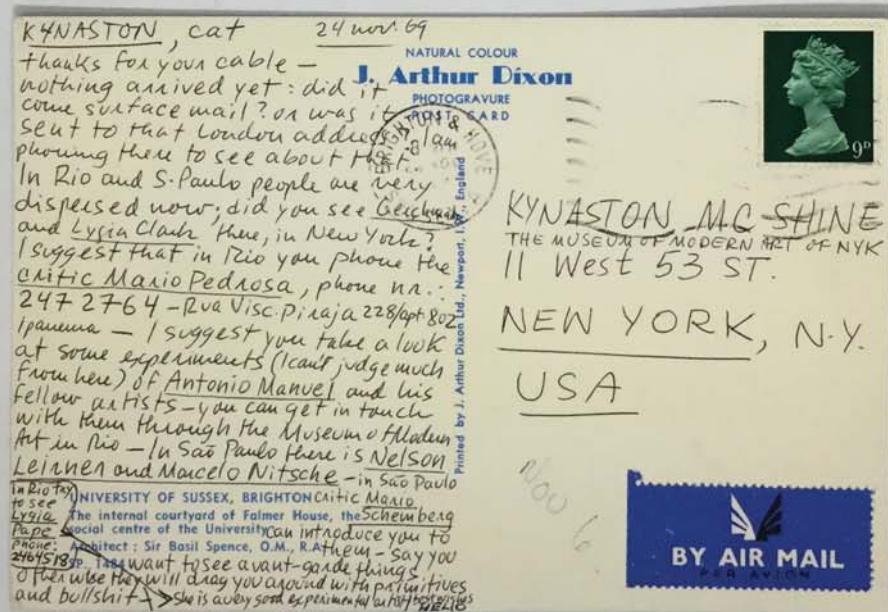 KYNASTON, cat 24 nov. 69
thanks for your cable –
nothing arrived yet: did it
come surface mail? or was it
sent to that London address? I am
phoning there to see about that.
In Rio and S. Paulo people are very
dispersed now; did you see Gerchman
and Lygia Clark there, in New York?
I suggest that in Rio you phone the
critic Mario Pedrosa, phone nr.:
247 2764 – Rua Visc. Piraja 228/apt. 802
Ipanema – I suggest you take a look
at some experiments (I can't judge much
from here) of Antonio Manuel and his
fellow artists – you can get in touch
with them through the Museum of Modern
Art in Rio – In São Paulo there is Nelson
Leirner and Marcelo Nitsche – in São Paulo
critic Mario
Schemberg
can introduce you to
them – say you
want to see avant-garde things
otherwise they will drag you around with primitives
and bullshit –
in Rio try
to see
Lygia
Pape
phone:
2464518
→ she is a very good experimental artist best wishes
HELIO
NATURAL COLOUR
J. Arthur Dixon
PHOTOGRAVURE
POST CARD
BRIGHTON & HOVE
9D
Printed by J. Arthur Dixon Ltd., Newport, I.W., England
UNIVERSITY OF SUSSEX, BRIGHTON
The internal courtyard of Falmer House, the
social centre of the University
Architect : Sir Basil Spence, O.M., R.A.
SP. 1484
KYNASTON MC SHINE
THE MUSEUM OF MODERN ART OF NYK
11 West 53 ST.
NEW YORK, N.Y.
USA
Nov 6
BY AIR MAIL
PAR AVION